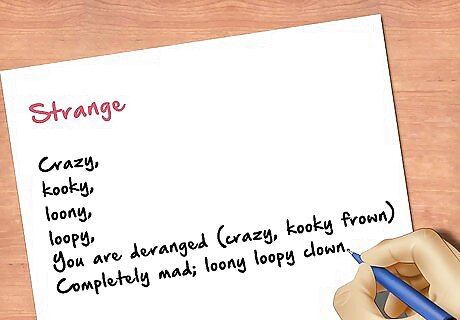 Strange
Crazy,
kooky,
loony,
loopy,
You are deranged (crazy, kooky frown)
Completely mad; loony loopy clown.